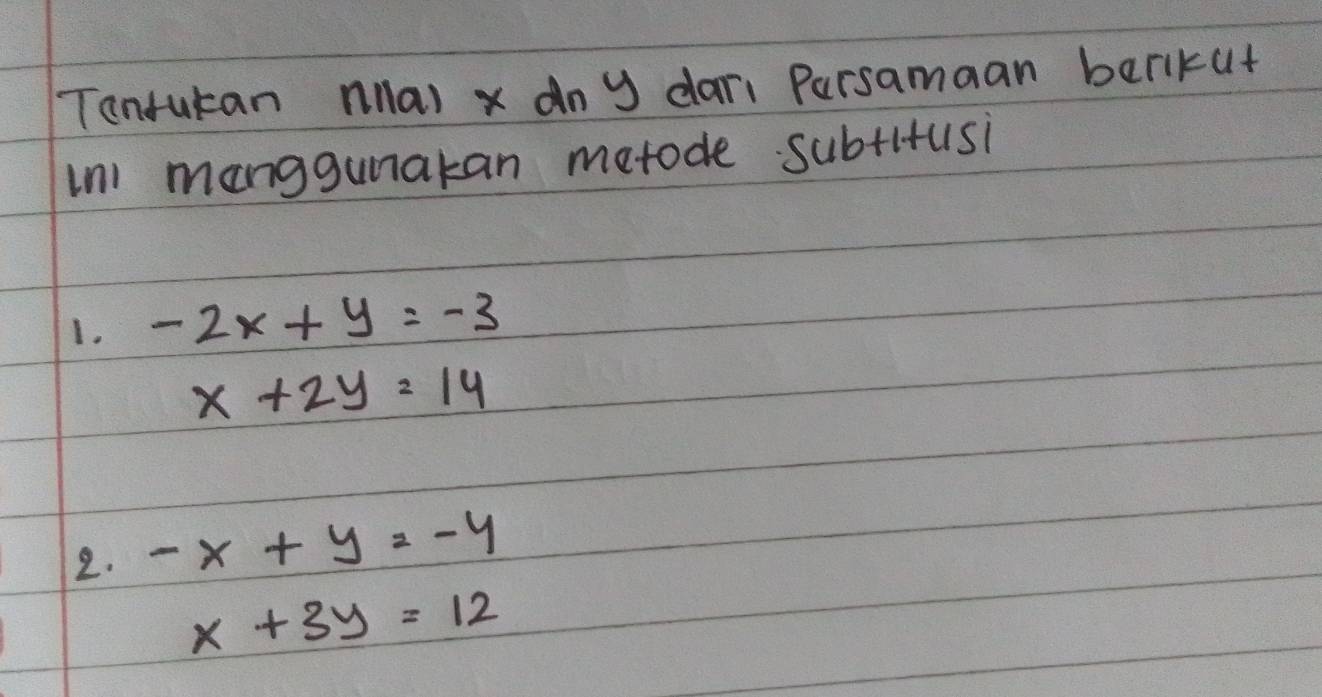 Tentukan nilai x dn y dari Persamaan berikut
ini menggunakan metode subtitusi
1. -2x + y = -3
x + 2y = 14
2. -x + y = -4
x + 3y = 12